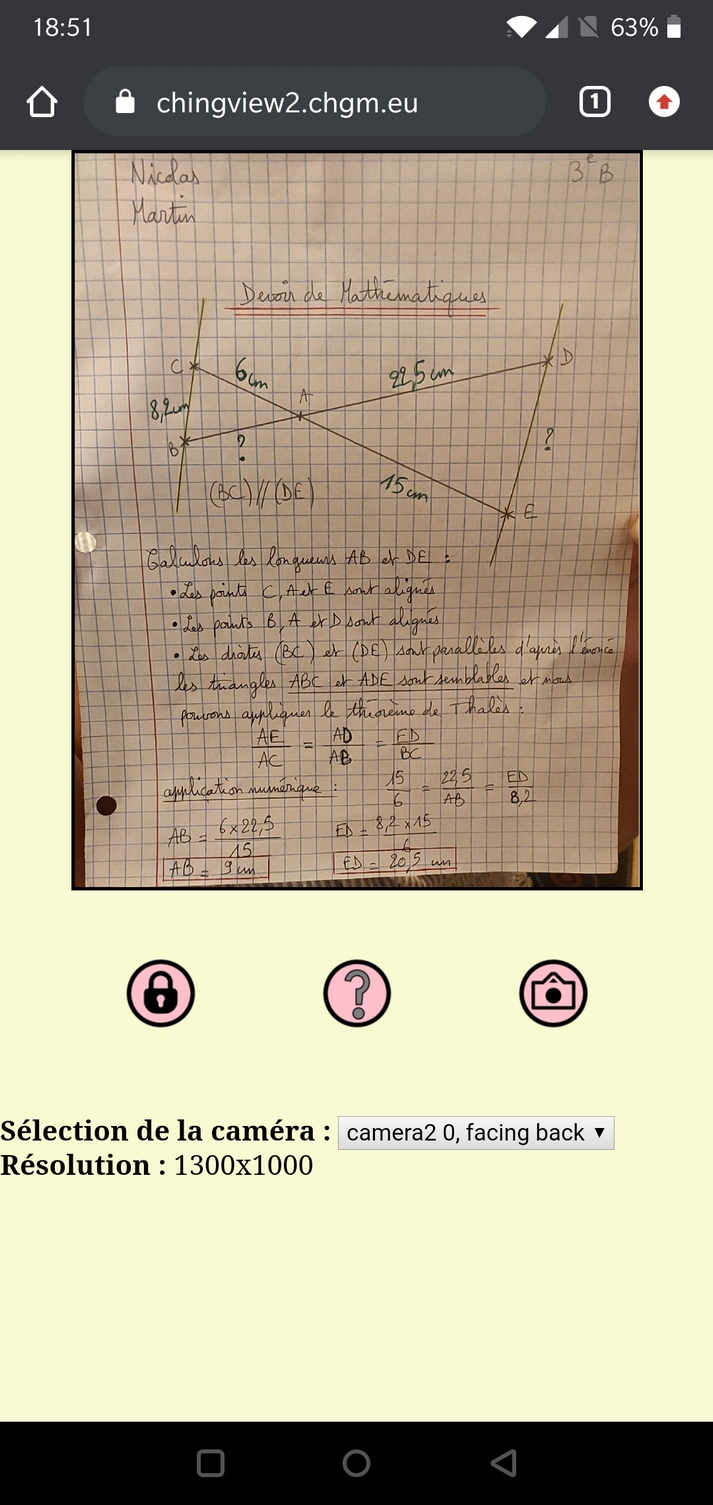 18:51
63%
chingview2.chgm.eu
1
Nicolas
3e B
Martin
Devoir de Mathématiques
C
6cm
22,5cm
D
A
8,2cm
B
?
?
(BC)//(DE)
15cm
E
Calculons les longueurs AB et DE :
• Les points C, A et E sont alignés
• Les points B, A et D sont alignés
• Les droites (BC) et (DE) sont parallèles d'après l'énoncé
les triangles ABC et ADE sont semblables et nous
pouvons appliquer le théorème de Thalès :
AE/AC = AD/AB = ED/BC
application numérique : 15/6 = 22,5/AB = ED/8,2
AB = 6×22,5/15 ED = 8,2×15/6
AB = 9 cm ED = 20,5 cm
?
Sélection de la caméra : camera2 0, facing back
Résolution : 1300x1000